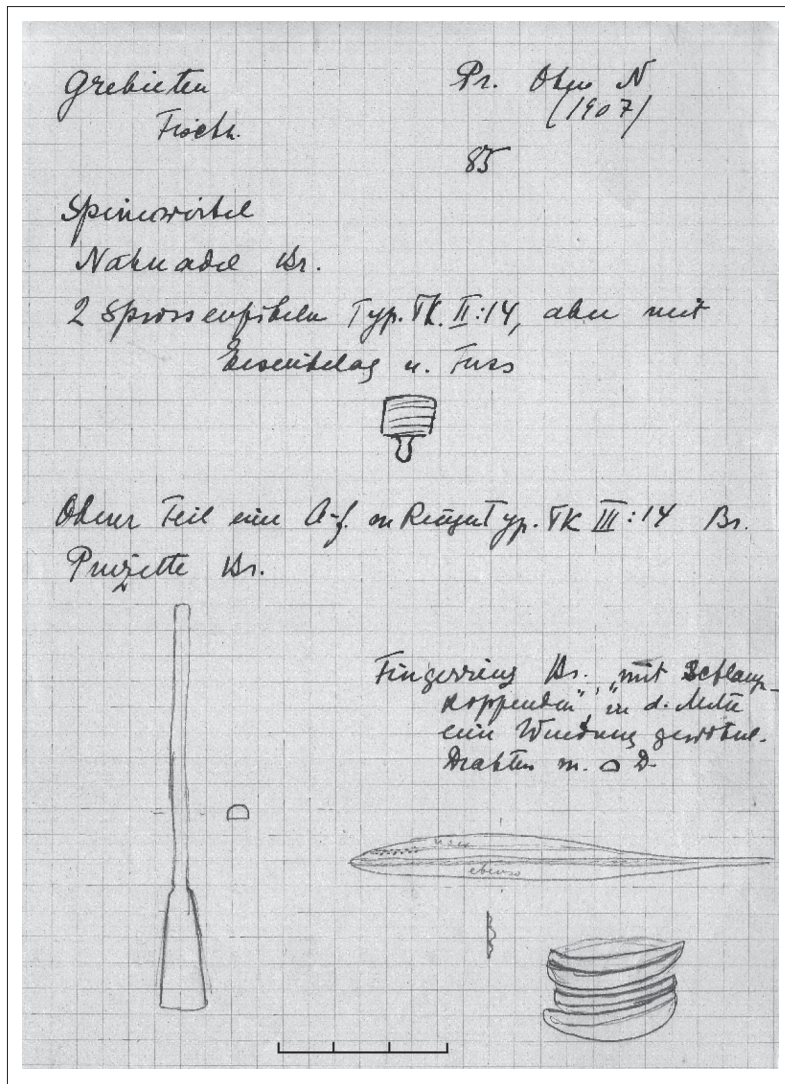 Grebieten
Fischh.
Pr. Ohne N
(1907)
85
Spinnwirtel
Nähnadel Br.
2 Sprossenfibeln Typ. TK. II:14, aber mit
Eisenbelag u. Fuss
Oberer Teil eine A-f. m Ringen Typ. TK III:14 Br.
Pinzette Br.
Fingerring Br. "mit Schlang-
koppenden", in d. Mitte
eine Windung gewöhnl.
Drahtes m. D
usw
ebenso